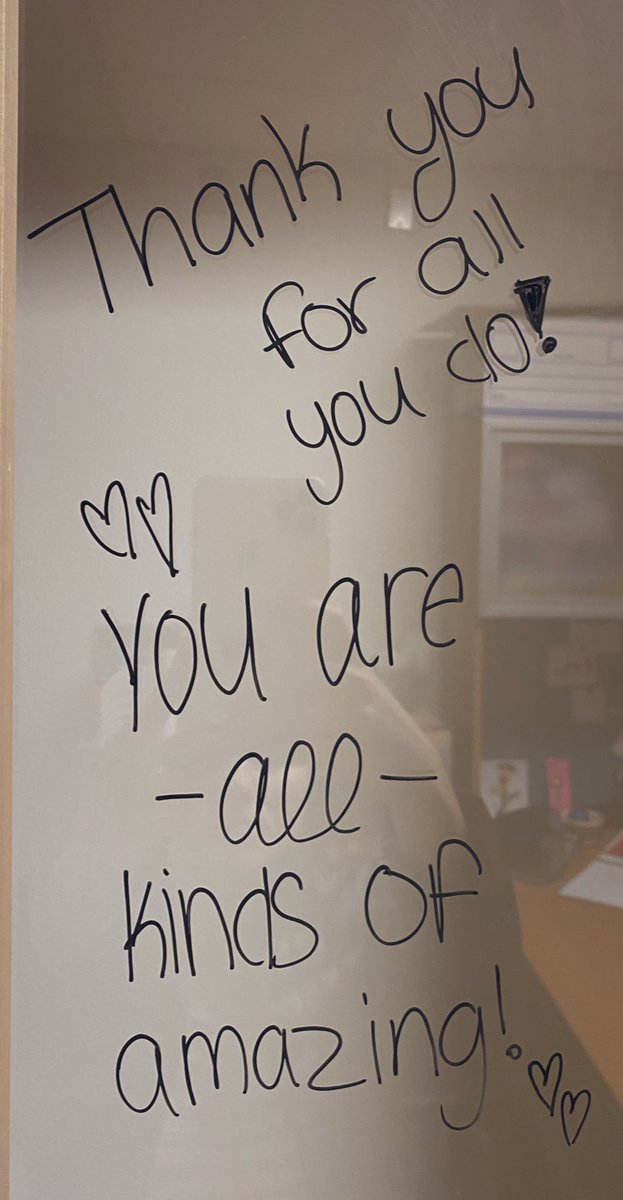 Thank you
for all
you do!
You are
-all-
kinds of
amazing!